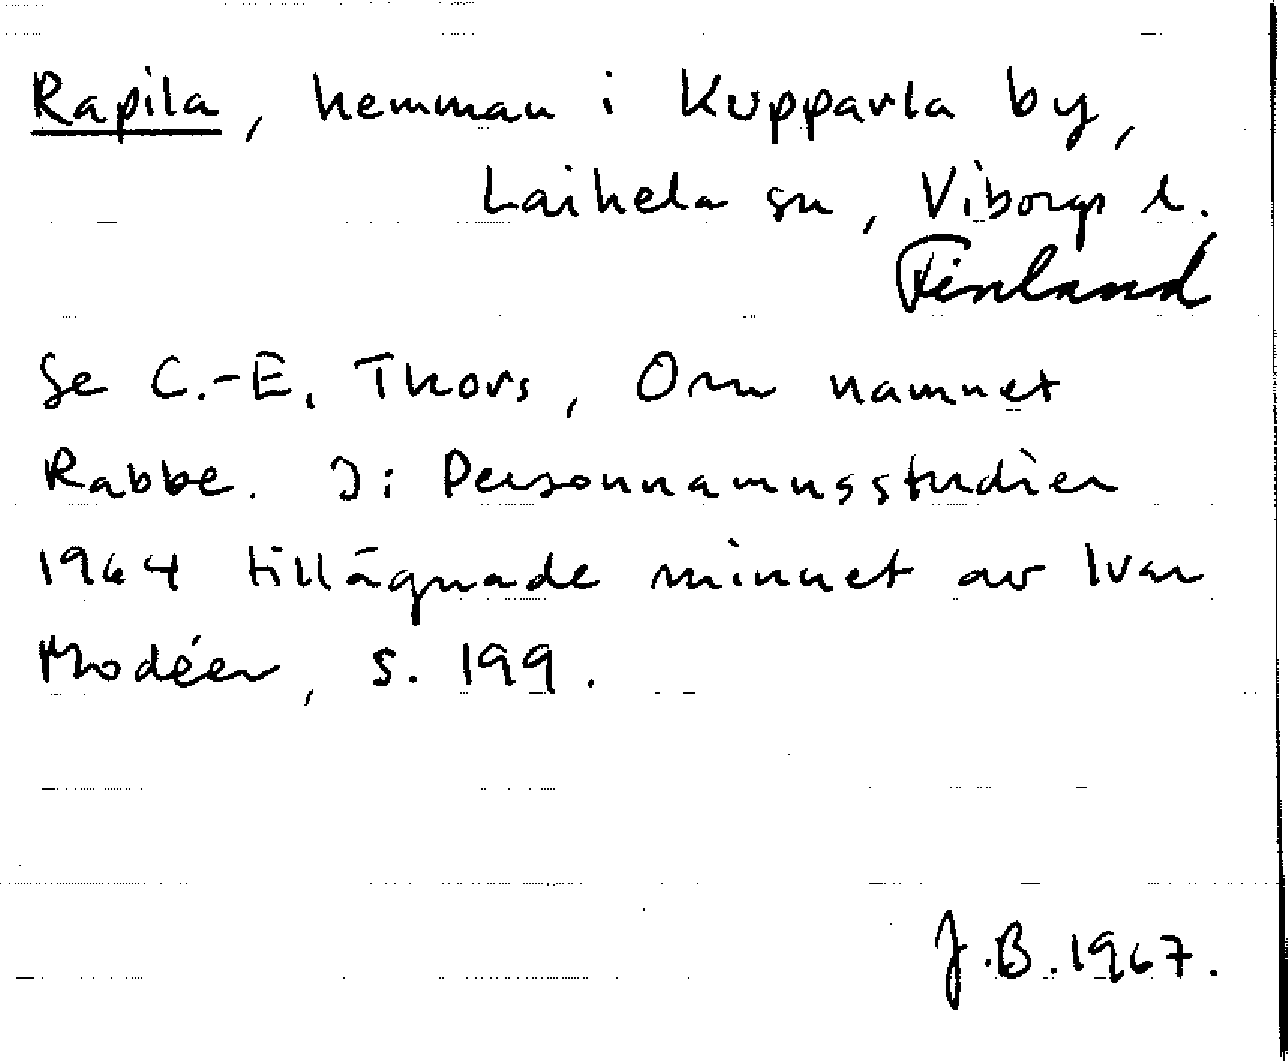 Rapila, hemman i Kupparla by,
Laihela sn, Viborgs l.
Finland
Se C.-E. Thors, Om namnet
Rabbe. I: Personnamnsstudier
1964 tillägnade minnet av Ivar
Modéer, s. 199.
J.B. 1967.